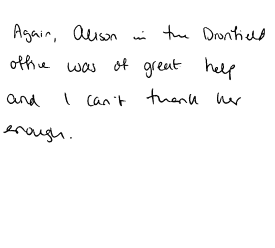 Again, Alison in the Dronfield
office was of great help
and I can't thank her
enough.